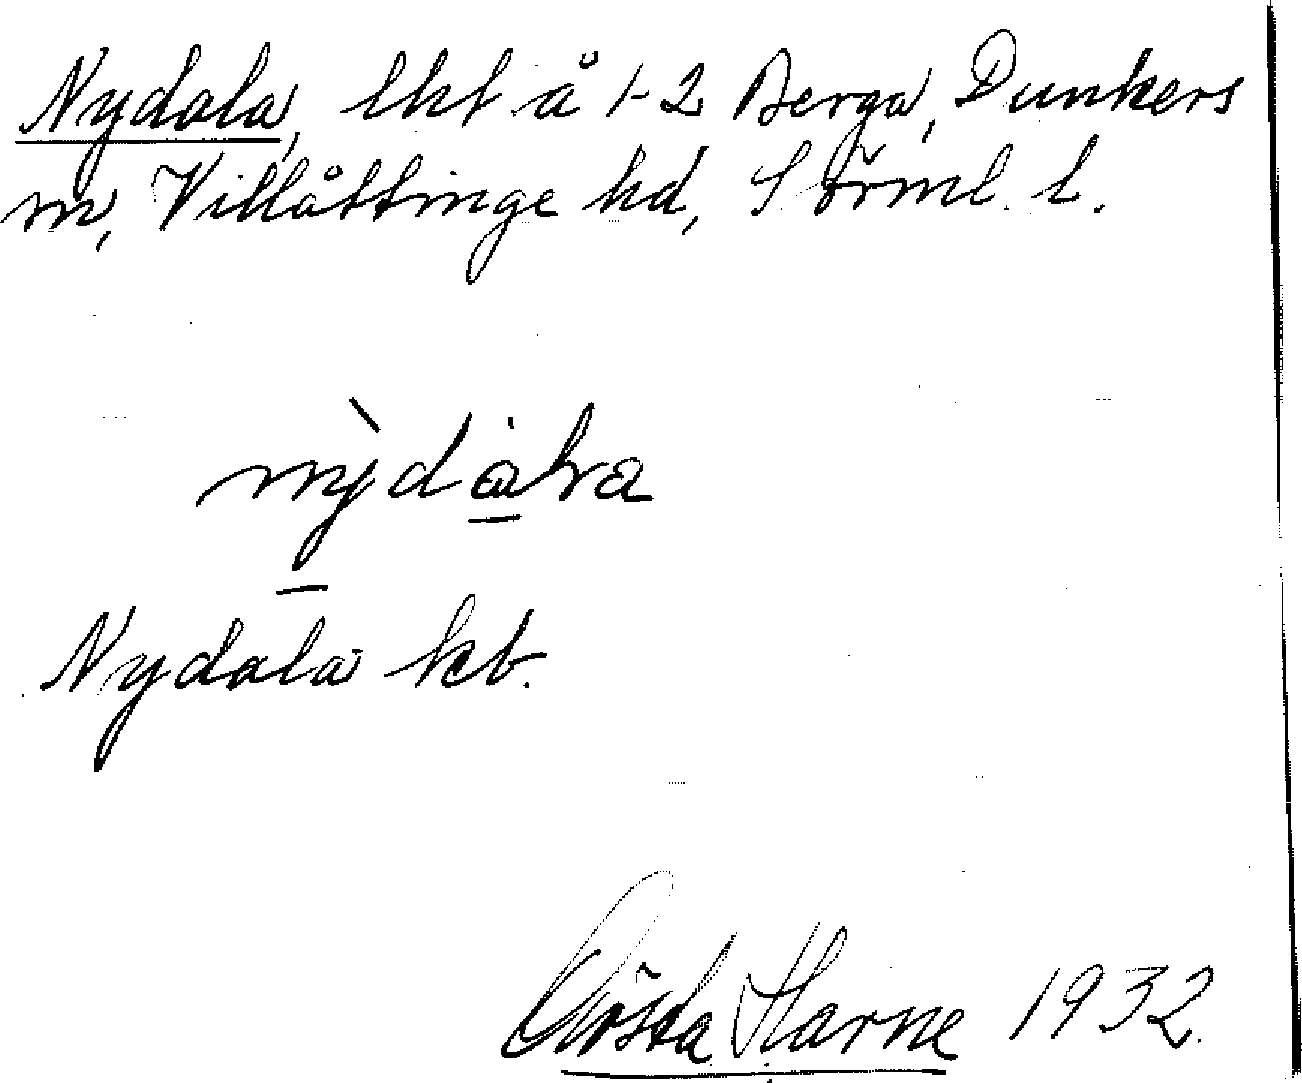 Nydala, lht å 1-2 Berga, Dunkers
sn, Villåttinge hd, Sörml. l.
Nydala kb.
Gösta Harne 1932.